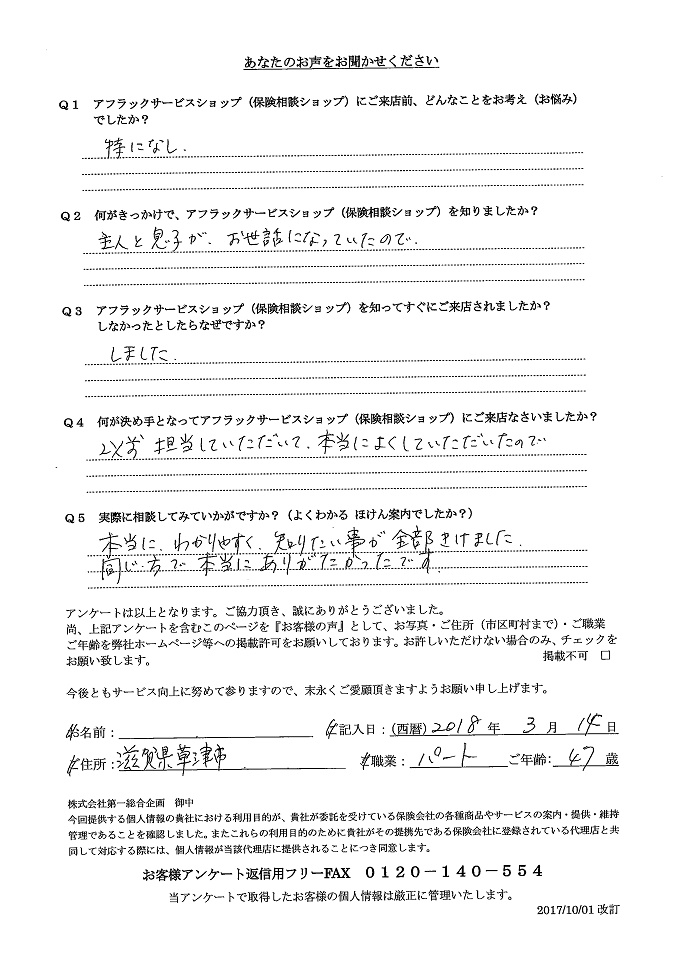 あなたのお声をお聞かせください
Q1 アフラックサービスショップ（保険相談ショップ）にご来店前、どんなことをお考え（お悩み）
でしたか？
特になし.
Q2 何がきっかけで、アフラックサービスショップ（保険相談ショップ）を知りましたか？
主人と息子が、お世話になっていたので.
Q3 アフラックサービスショップ（保険相談ショップ）を知ってすぐにご来店されましたか？
しなかったとしたらなぜですか？
しました.
Q4 何が決め手となってアフラックサービスショップ（保険相談ショップ）にご来店なさいましたか？
以前 担当していただいて、本当によくしていただいたので
Q5 実際に相談してみていかがですか？（よくわかる ほけん案内でしたか？）
本当に、わかりやすく、知りたい事が全部きけました.
同じ方で本当にありがたかったです.
アンケートは以上となります。ご協力頂き、誠にありがとうございました。
尚、上記アンケートを含むこのページを『お客様の声』として、お写真・ご住所（市区町村まで）・ご職業
ご年齢を弊社ホームページ等への掲載許可をお願いしております。お許しいただけない場合のみ、チェックを
お願い致します。 掲載不可 □
今後ともサービス向上に努めて参りますので、末永くご愛顧頂きますようお願い申し上げます。
お名前： ご記入日：(西暦) 2018 年 3 月 14 日
ご住所：滋賀県草津市 ご職業：パート ご年齢：47 歳
株式会社第一総合企画 御中
今回提供する個人情報の貴社における利用目的が、貴社が委託を受けている保険会社の各種商品やサービスの案内・提供・維持
管理であることを確認しました。またこれらの利用目的のために貴社がその提携先である保険会社に登録されている代理店と共
同して対応する際には、個人情報が当該代理店に提供されることにつき同意します。
お客様アンケート返信用フリーFAX 0120－140－554
当アンケートで取得したお客様の個人情報は厳正に管理いたします。
2017/10/01 改訂